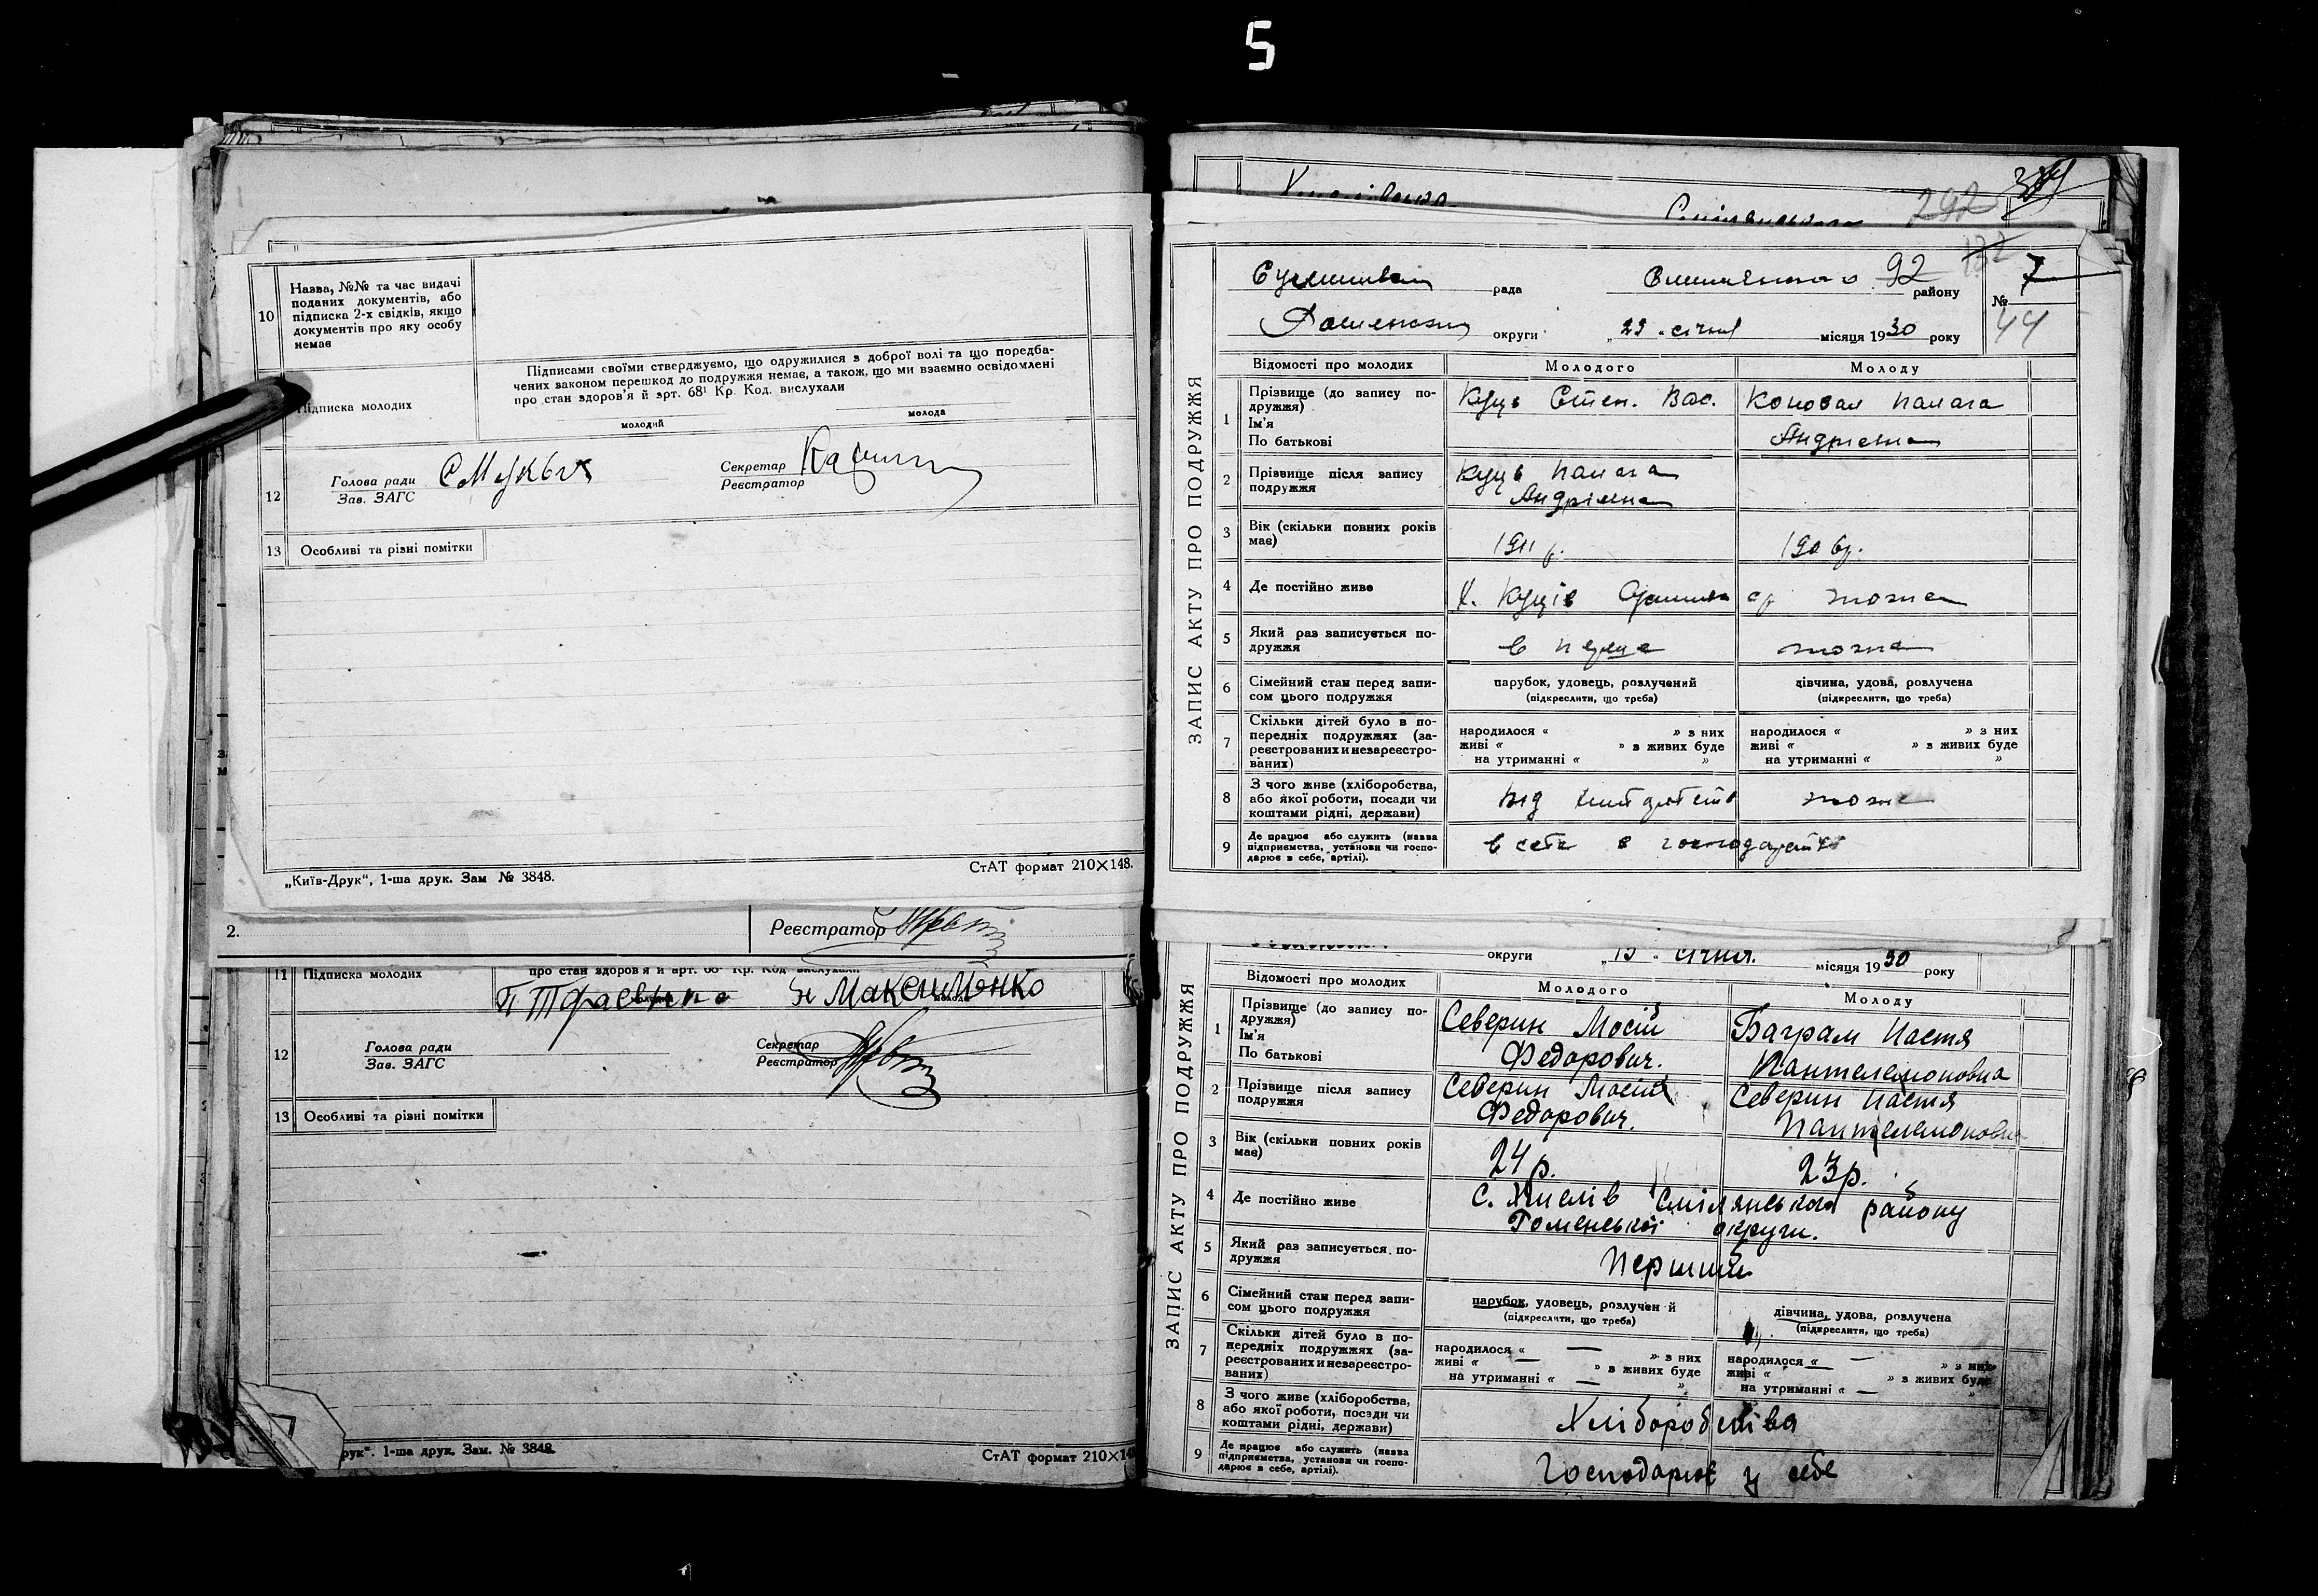 5
10
Назва, №№ та час видачі
поданих документів, або
підписка 2-х свідків, якщо
документів про яку особу
немає
Підписами своїми стверджуємо, що одружилися з доброї волі та що поредба-
чених законом перешкод до подружжя немає, а також, що ми взаємно освідомлені
про стан здоров'я й арт. 68¹ Кр. Код. вислухали
Підписка молодих
молодий
молода
12
Голова ради
Зав. ЗАГС
Секретар
Реєстратор
13 Особливі та різні помітки
„Київ-Друк“, 1-ша друк. Зам № 3848.
СтАТ формат 210×148.
2.
Реєстратор
11 Підписка молодих
про стан здоров'я й арт. 68¹ Кр. Код вислухали
Максименко
12
Голова ради
Зав. ЗАГС
Секретар
Реєстратор
13 Особливі та різні помітки
рук“. 1-ша друк. Зам. № 3848
СтАТ формат 210×14
292
рада
92
району
132
№ 7
44
округи
„23 „ січня місяця 1930 року
ЗАПИС АКТУ ПРО ПОДРУЖЖЯ
Відомості про молодих
Молодого
Молоду
1
Прізвище (до запису по-
дружжя)
Ім'я
По батькові
Куць Степ. Вас.
Коновал Палага
Андріевна
2
Прізвище після запису
подружжя
Куць Палага
Андріевна
3
Вік (скільки повних років
має)
1911 р.
1906р.
4
Де постійно живе
х. Куців
тожна
5
Який раз записується по-
дружжя
в перше
тожна
6
Сімейний стан перед запи-
сом цього подружжя
парубок, удовець, розлучений
(підкреслити, що треба)
дівчина, удова, розлучена
(підкреслити, що треба)
7
Скільки дітей було в по-
передніх подружжях (за-
реєстрованих и незареєстро-
ваних)
народилося « » з них
живі « » з живих буде
на утриманні « »
народилося « » з них
живі « » з живих буде
на утриманні « »
8
З чого живе (хліборобства,
або якої роботи, посади чи
коштами рідні, держави)
від
9
Де працює або служить (назва
підприємства, установи чи госпо-
дарює в себе, артілі).
в себе в господарстві
округи
„15 „ січня. місяця 1930 року
ЗАПИС АКТУ ПРО ПОДРУЖЖЯ
Відомості про молодих
Молодого
Молоду
1
Прізвище (до запису по-
дружжя)
Ім'я
По батькові
Северин Мосій
Федорович.
Баграм Настя
Пантелемоновна
2
Прізвище після запису
подружжя
Северин Мосій
Федорович.
Северин Настя
Пантелемоновна
3
Вік (скільки повних років
має)
24р.
23р.
4
Де постійно живе
с. Хмелів Смілянського району
Роменської округи.
5
Який раз записується по-
дружжя
Перший
6
Сімейний стан перед запи-
сом цього подружжя
парубок, удовець, розлучен й
(підкреслити, що треба)
дівчина, удова, розлучена
(підкреслити, що треба)
7
Скільки дітей було в по-
передніх подружжях (за-
реєстрованих и незареєстро-
ваних)
народилося « — » з них
живі « — » з живих буде
на утриманні « — »
народилося « — » з них
живі « — » з живих буде
на утриманні « — »
8
З чого живе (хліборобства,
або якої роботи, посади чи
коштами рідні, держави)
Хліборобства
9
Де працює або служить (назва
підприємства, установи чи госпо-
дарює в себе, артілі).
Господарює у себе